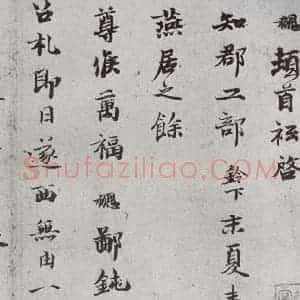 頓首祗啓
知郡工部 鈴下末夏
燕居之餘
尊候萬福 鄙鈍
召札即日遂西無由
Shufaziliao.COM